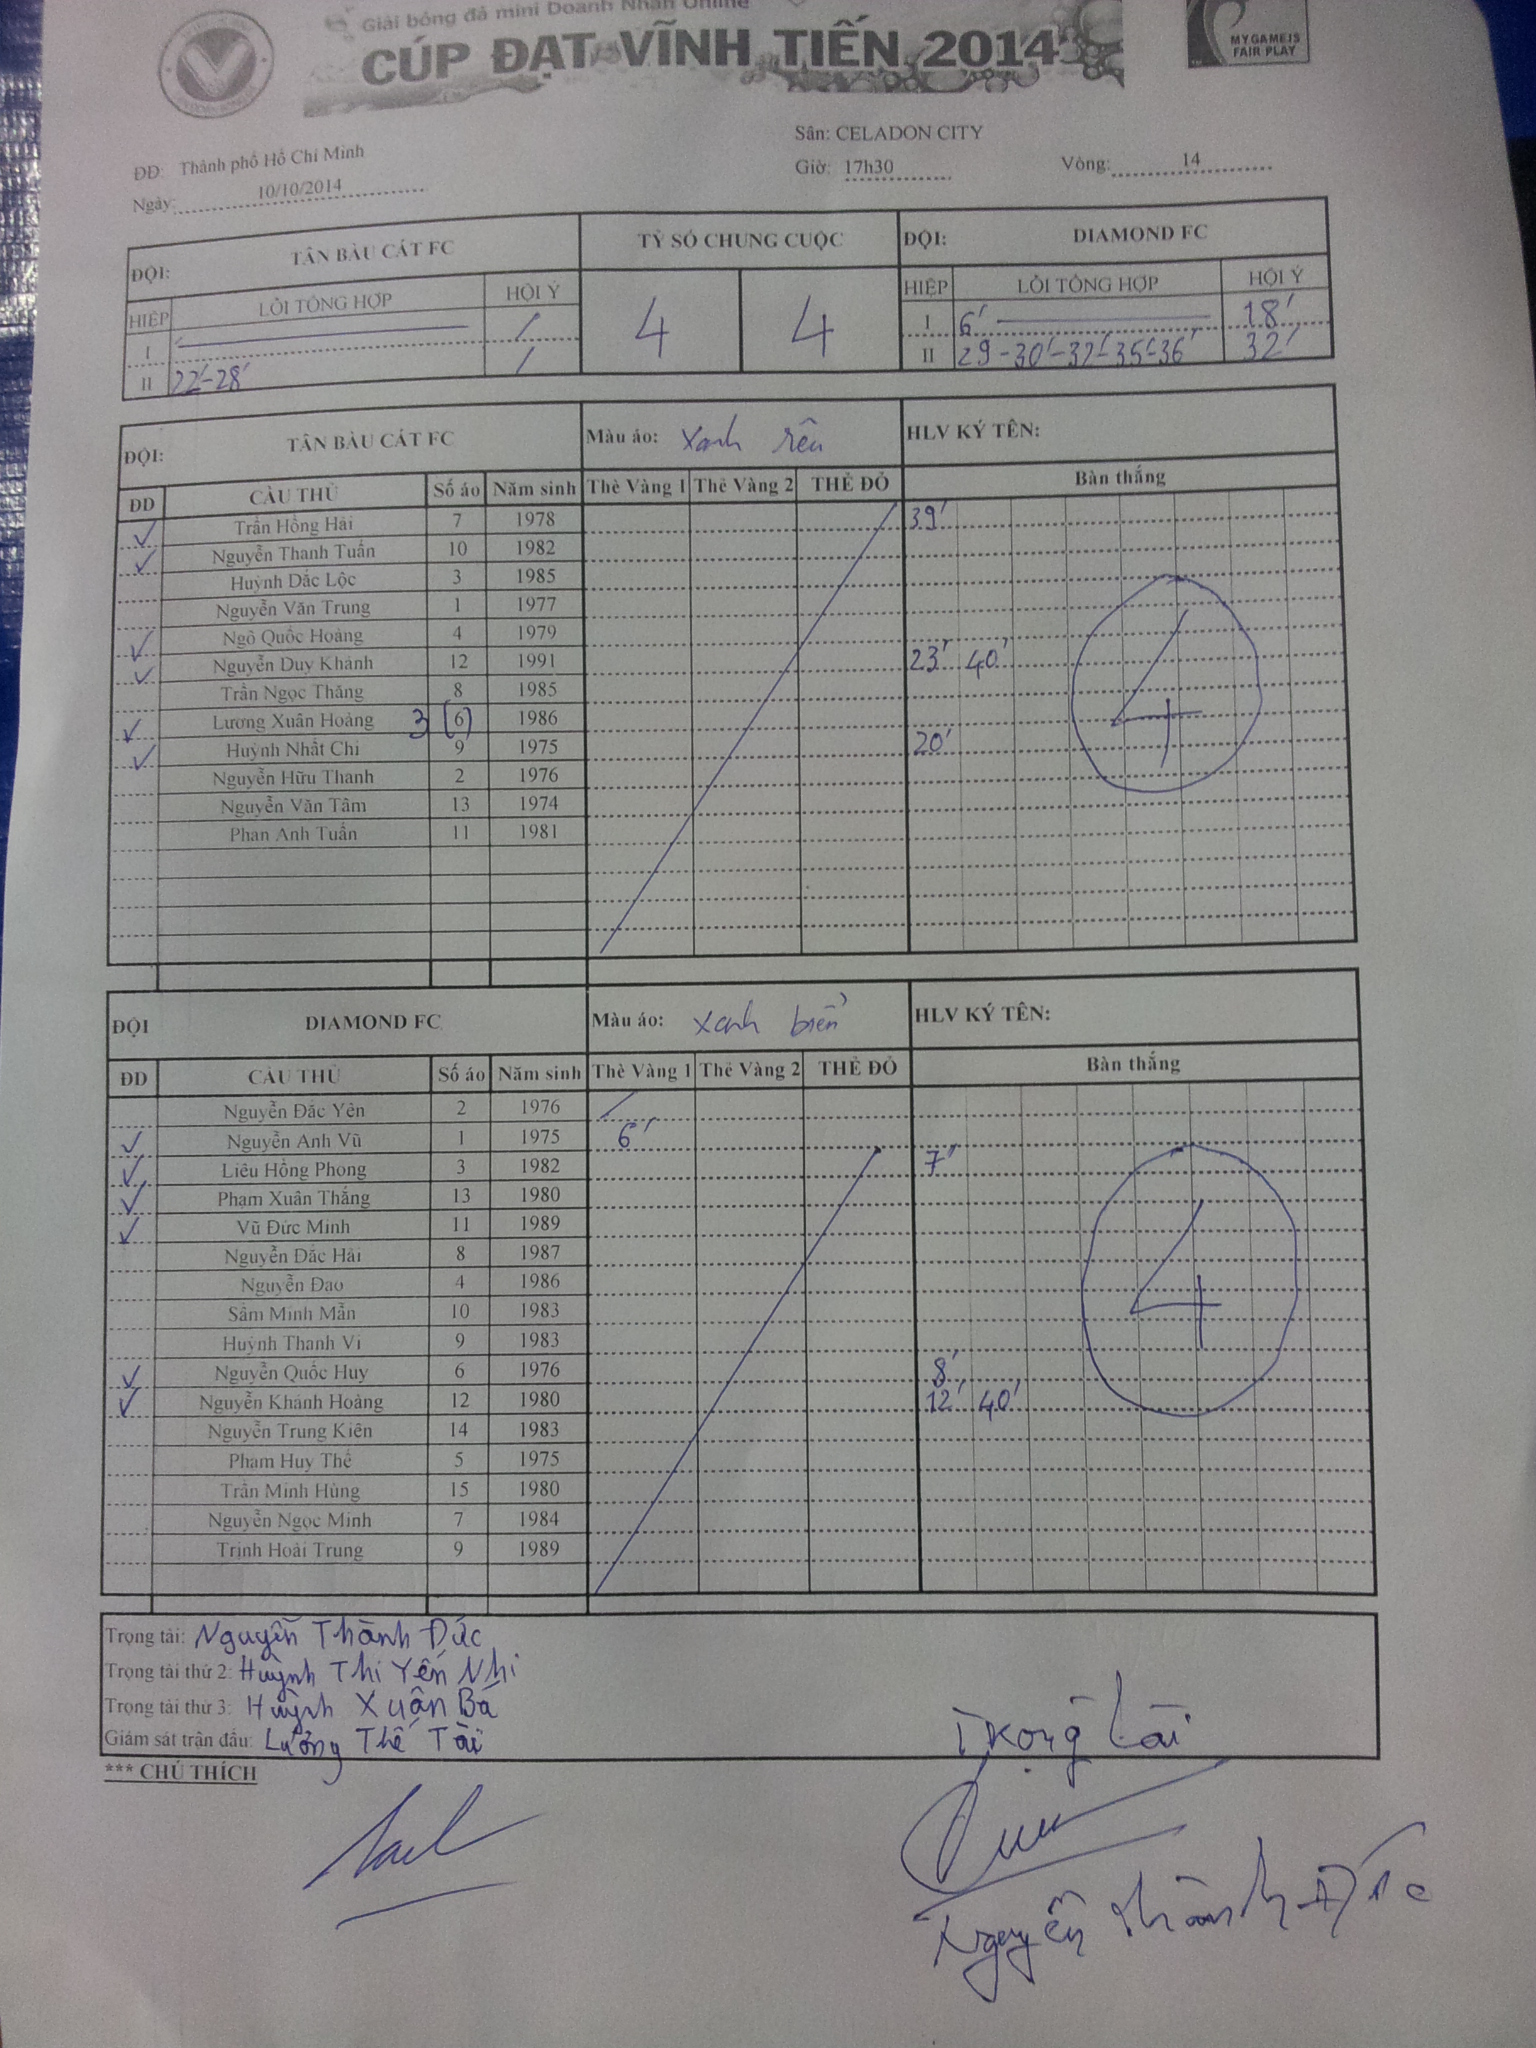 Giải bóng đá mini Doanh Nhân Online
CÚP ĐẠT VĨNH TIẾN 2014
MY GAME IS
FAIR PLAY
ĐĐ: Thành phố Hồ Chí Minh
Ngày: 10/10/2014
Sân: CELADON CITY
Giờ: 17h30 Vòng: 14
ĐỘI: TÂN BÀU CÁT FC TỶ SỐ CHUNG CUỘC ĐỘI: DIAMOND FC
HIỆP LỖI TỔNG HỢP HỘI Ý 4 4 HIỆP LỖI TỔNG HỢP HỘI Ý
I I 6' 18'
II 22'-28' II 29-30'-32'-35'-36' 32'
ĐỘI: TÂN BÀU CÁT FC Màu áo: xanh HLV KÝ TÊN:
ĐD CẦU THỦ Số áo Năm sinh Thẻ Vàng 1 Thẻ Vàng 2 THẺ ĐỎ Bàn thắng
✓ Trần Hồng Hải 7 1978 39'
✓ Nguyễn Thanh Tuấn 10 1982
Huỳnh Dắc Lộc 3 1985
Nguyễn Văn Trung 1 1977
✓ Ngô Quốc Hoàng 4 1979
✓ Nguyễn Duy Khánh 12 1991 23' 40'
Trần Ngọc Thăng 8 1985
✓ Lương Xuân Hoàng 3 (6) 1986
✓ Huỳnh Nhất Chi 9 1975 20'
Nguyễn Hữu Thanh 2 1976
Nguyễn Văn Tâm 13 1974
Phan Anh Tuấn 11 1981
4
ĐỘI DIAMOND FC Màu áo: xanh biển HLV KÝ TÊN:
ĐD CẦU THỦ Số áo Năm sinh Thẻ Vàng 1 Thẻ Vàng 2 THẺ ĐỎ Bàn thắng
Nguyễn Đắc Yên 2 1976
✓ Nguyễn Anh Vũ 1 1975 6'
✓ Liêu Hồng Phong 3 1982 7'
✓ Phạm Xuân Thắng 13 1980
✓ Vũ Đức Minh 11 1989
Nguyễn Đắc Hải 8 1987
Nguyễn Đạo 4 1986
Sầm Minh Mẫn 10 1983
Huỳnh Thanh Vi 9 1983
✓ Nguyễn Quốc Huy 6 1976 8'
✓ Nguyễn Khánh Hoàng 12 1980 12' 40'
Nguyễn Trung Kiên 14 1983
Phạm Huy Thế 5 1975
Trần Minh Hùng 15 1980
Nguyễn Ngọc Minh 7 1984
Trịnh Hoài Trung 9 1989
4
Trọng tài: Nguyễn Thành Đức
Trọng tài thứ 2: Huỳnh Thị Yến Nhi
Trọng tài thứ 3: Huỳnh Xuân Bá
Giám sát trận đấu: Lương Thế Tài
*** CHÚ THÍCH
Trọng tài
Nguyễn Thành Đức